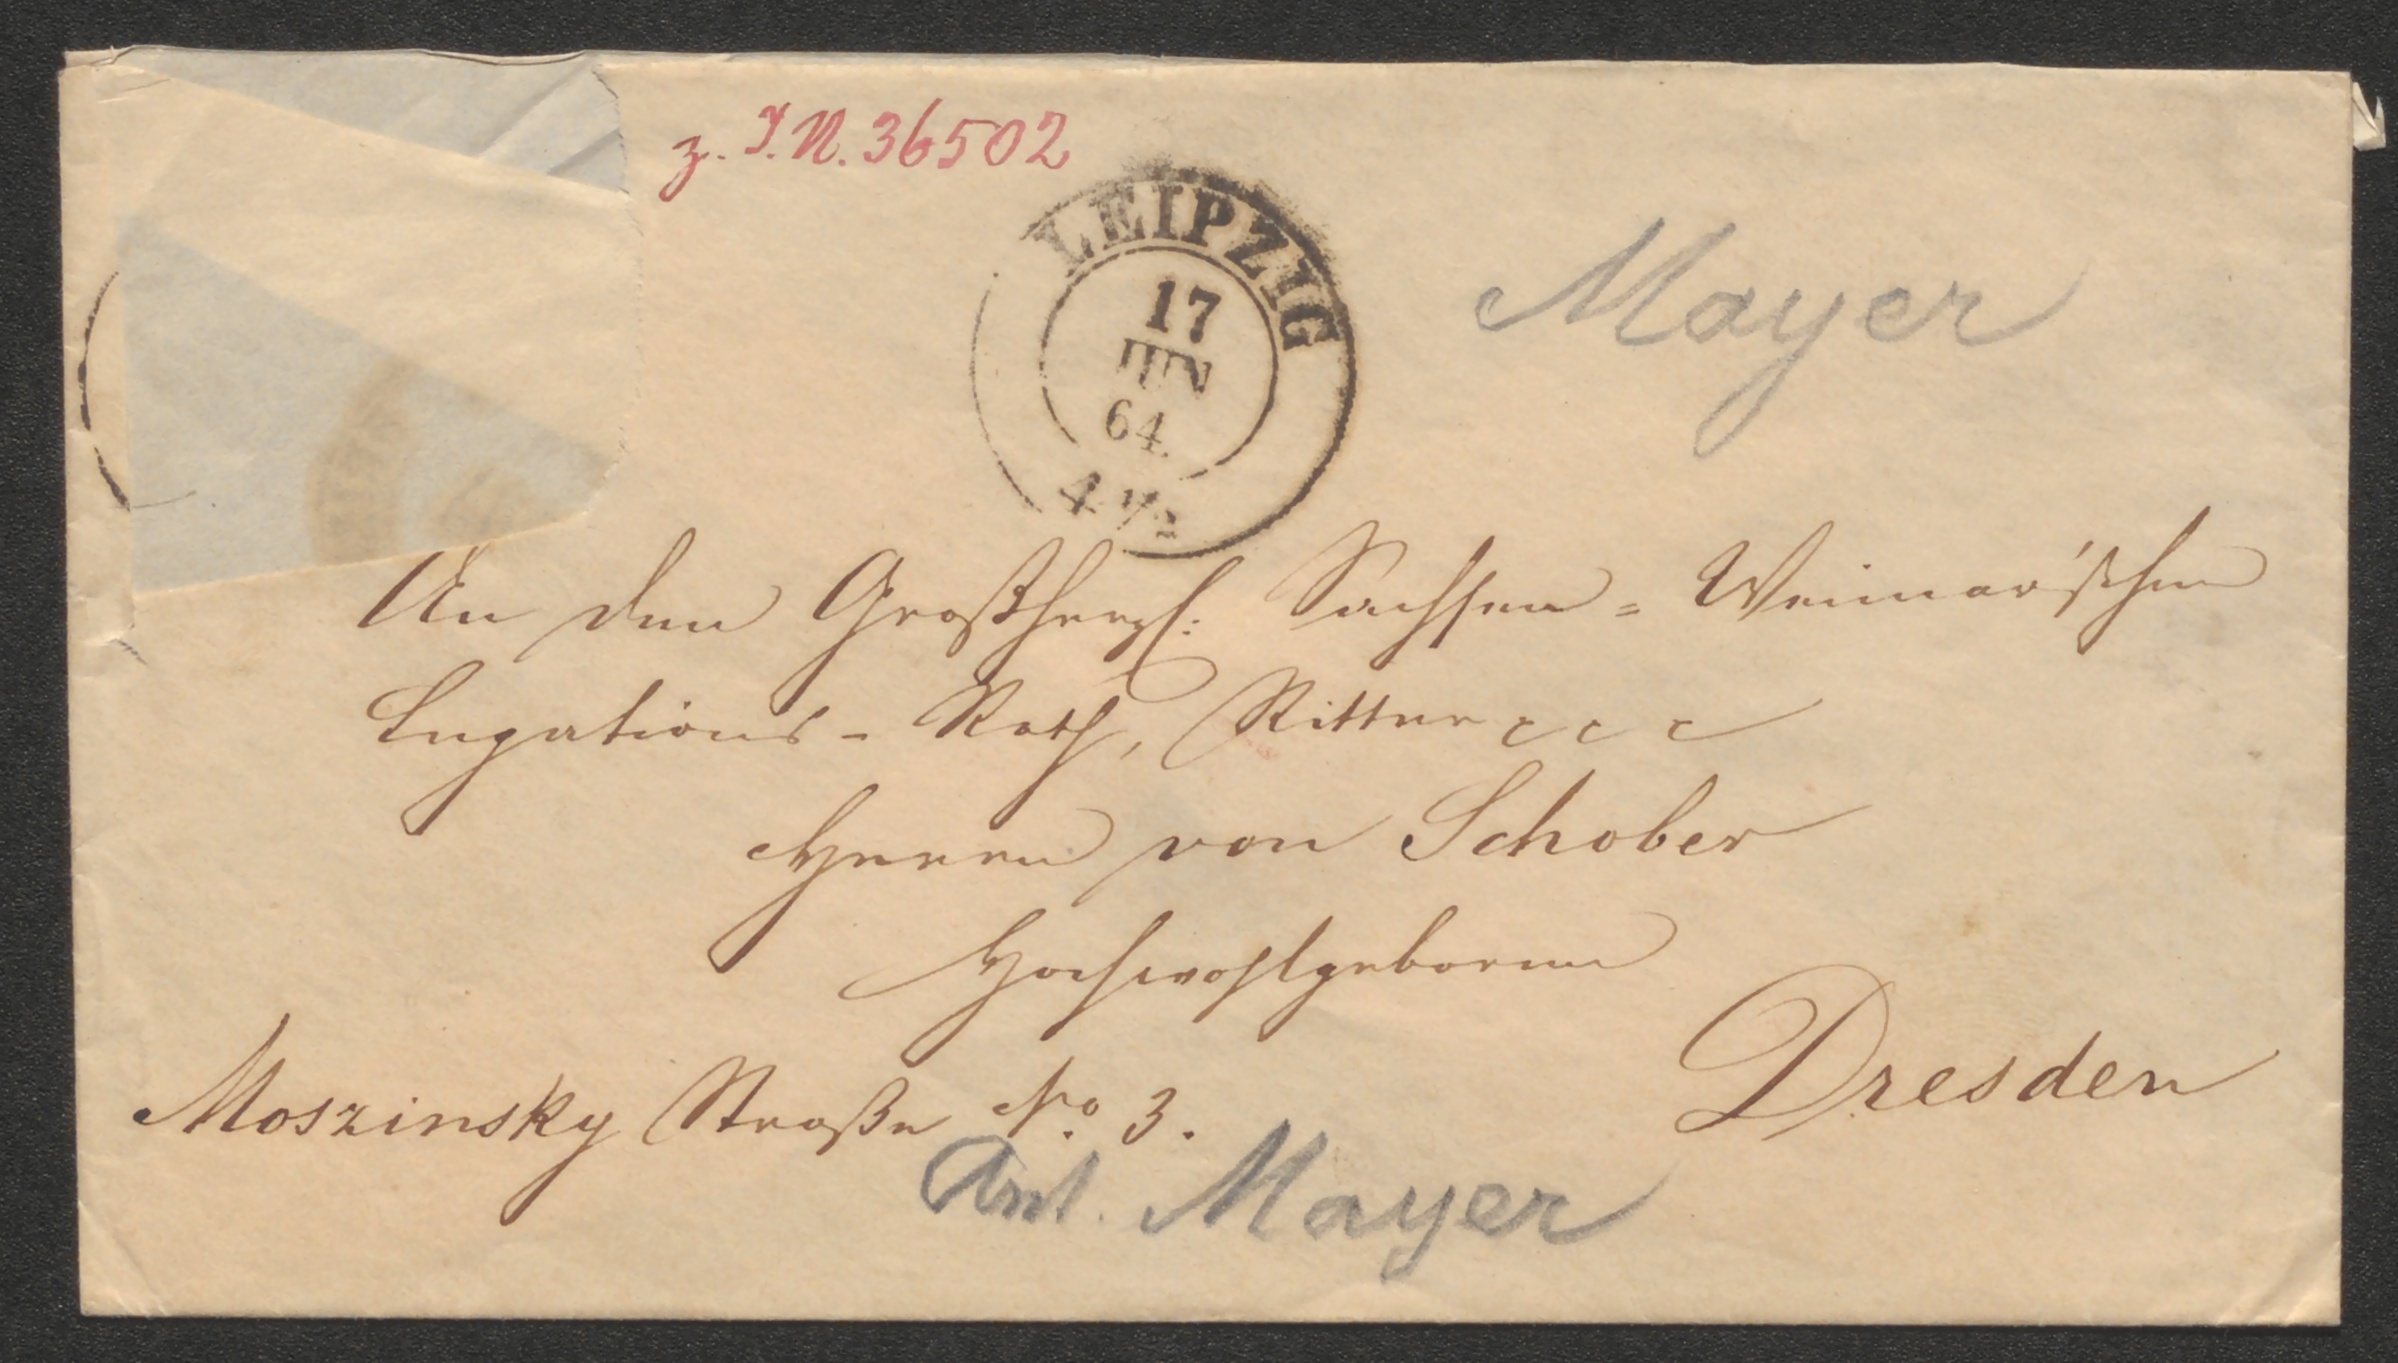 z. I.N. 36502
LEIPZIG
17
JUN
64.
4 1/2
Mayer
An den Großherzl: Sachsen = Weimar'schen
Legations - Rath, Ritter c c c
Herrn von Schober
Hochwohlgeboren
Moszinsky Straße No. 3.
Dresden
Ant. Mayer